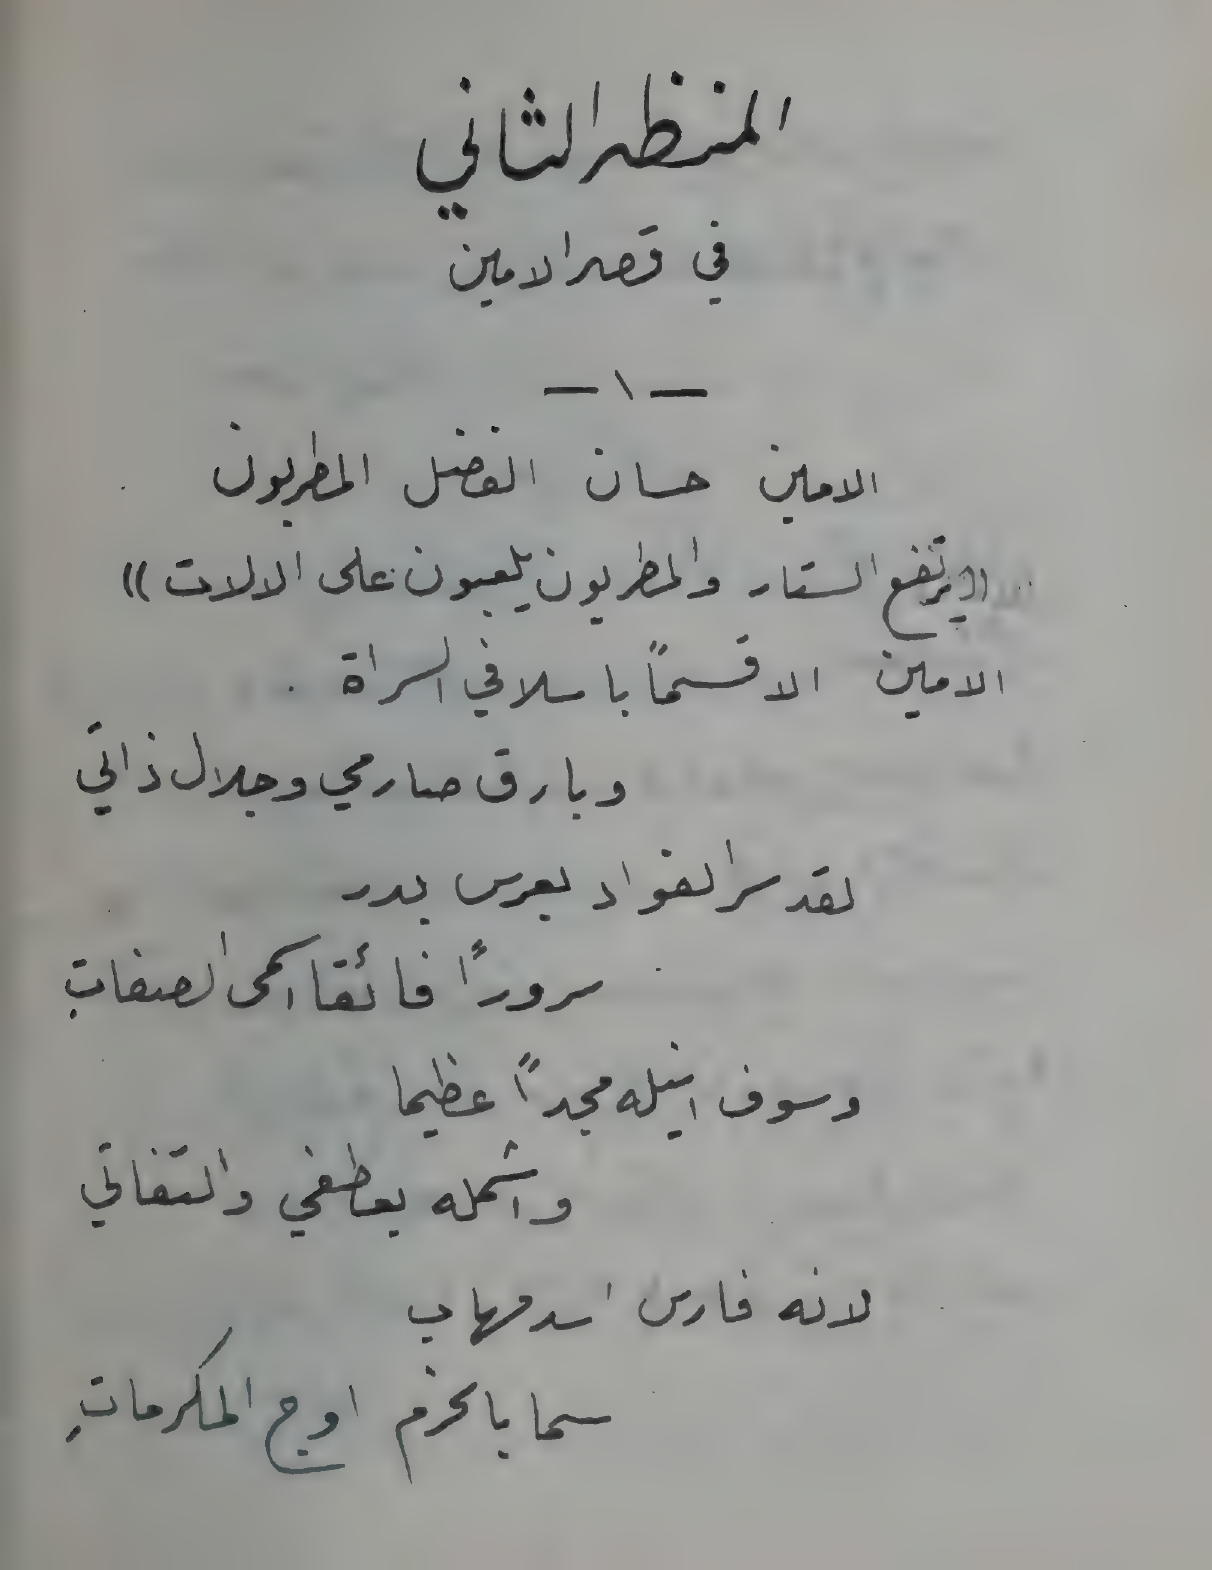 المنظر الثاني
في قصر الامين
— ١ —
الامين حسان الفضل المطربون
((يرتفع الستار والمطربون يلعبون على الالات))
الامين الا قسماً باسلافي السراة
وبارق صارمي وجلال ذاتي
لقد سر الفواد بعرس بدر
سروراً فائقا اسمى الصفات
وسوف انيله مجداً عظيما
واشمله بعطفي والتفاتي
لانه فارس اسد مهاب
سما بالحزم اوج المكرماتِ